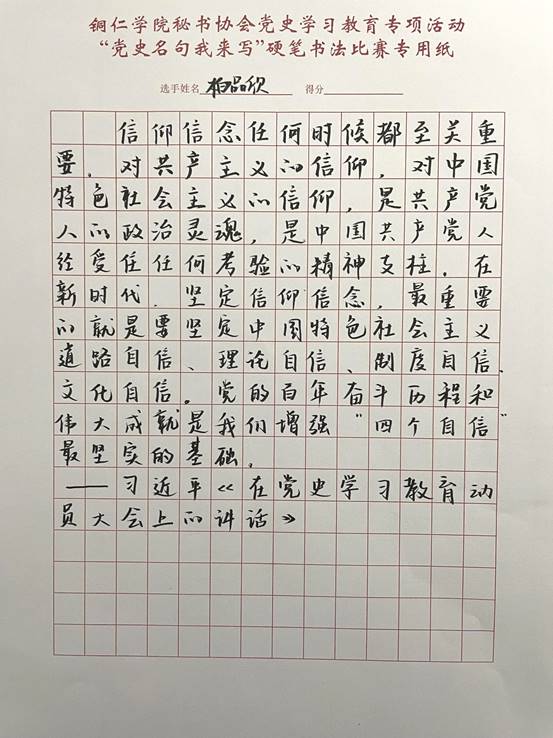 铜仁学院秘书协会党史学习教育专项活动
“党史名句我来写”硬笔书法比赛专用纸
选手姓名 柏品欣 得分
信仰信念任何时候都至关重
要。对共产主义的信仰，对中国
特色社会主义的信仰，是共产党
人的政治灵魂，是中国共产党人
经受住任何考验的精神支柱。在
新时代，坚定信仰信念，最重要
的就是要坚定中国特色社会主义
道路自信、理论自信、制度自信、
文化自信。党的百年奋斗历程和
伟大成就是我们增强“四个自信”
最坚实的基础。
——习近平《在党史学习教育动
员大会上的讲话》